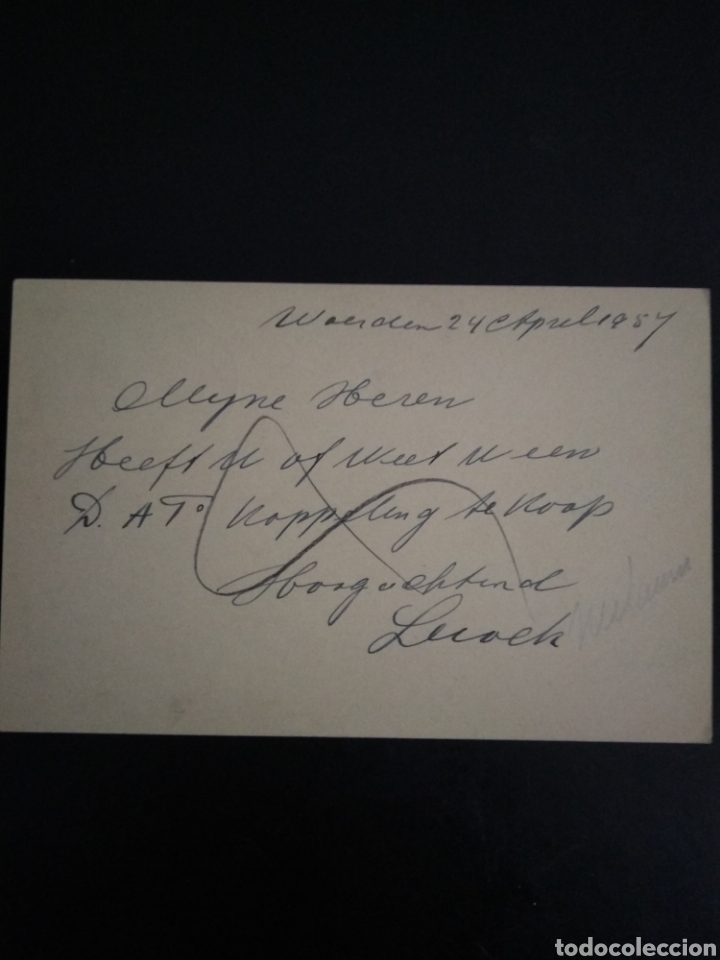 Woerden 24 April 1957
Myne Heren
Heeft U of Weet U een
D. A To Koppeling te Koop
Hoogachtend
todocoleccion
todocoleccion.net